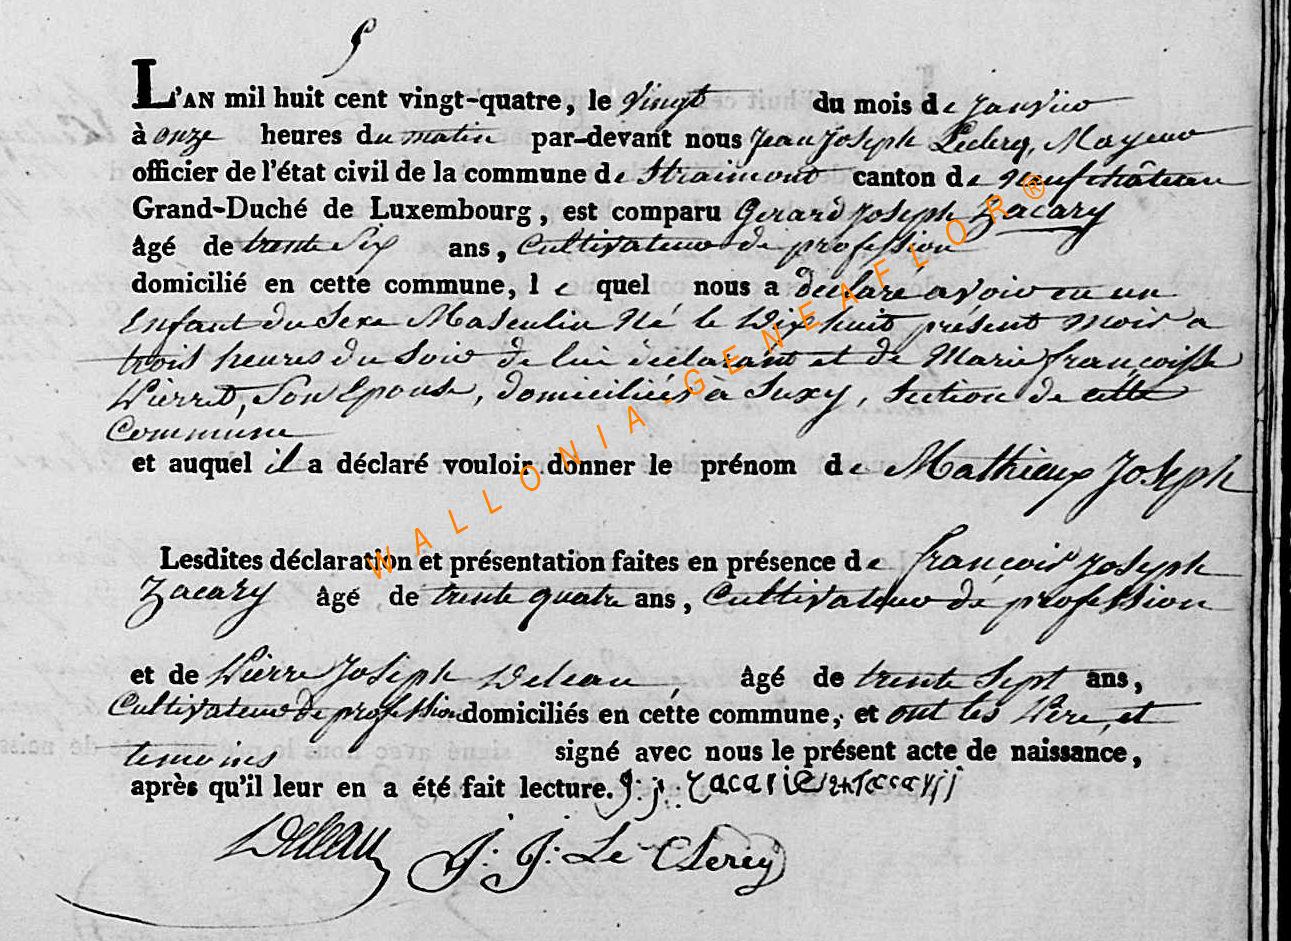 5
L'AN mil huit cent vingt-quatre, le vingt du mois de janvier
à onze heures du matin par-devant nous Jean Joseph Leclerq, Mayeur
officier de l'état civil de la commune de Straimont canton de Neufchâteau
Grand-Duché de Luxembourg, est comparu Gerard Joseph Zacary
âgé de trente six ans, Cultivateur de profession
domicilié en cette commune, le quel nous a déclaré avoir eu un
Enfant du Sexe Masculin Né le Dix huit présent mois a
trois heures du Soir de lui déclarant et de Marie françoisse
Pierret, Son Epouse, domiciliés à Suxy, Section de cette
Commune
et auquel il a déclaré vouloir donner le prénom de Mathieux Joseph
Lesdites déclaration et présentation faites en présence de françois Joseph
Zacary âgé de trente quatre ans, Cultivateur de profession
et de Pierre Joseph Deleau, âgé de trente Sept ans,
Cultivateur de profession domiciliés en cette commune, et ont les Père, et
temoins signé avec nous le présent acte de naissance,
après qu'il leur en a été fait lecture. g: j: Zacarie
Deleau J: J: Le Clercq
WALLONIA-GENEAFLOR®